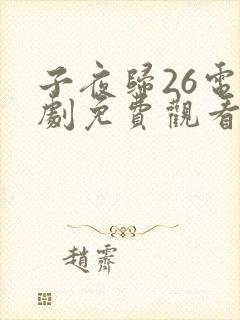 子夜歸26電
劇免費觀看
趙霽